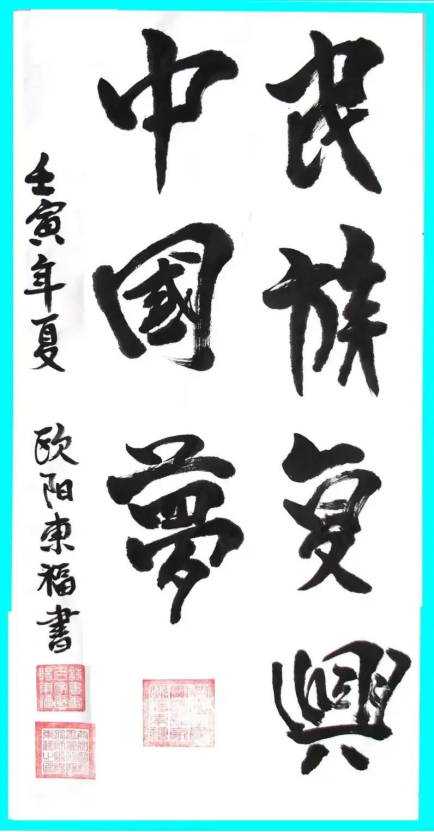 民族复興
中國夢
壬寅年夏 欧阳東福書